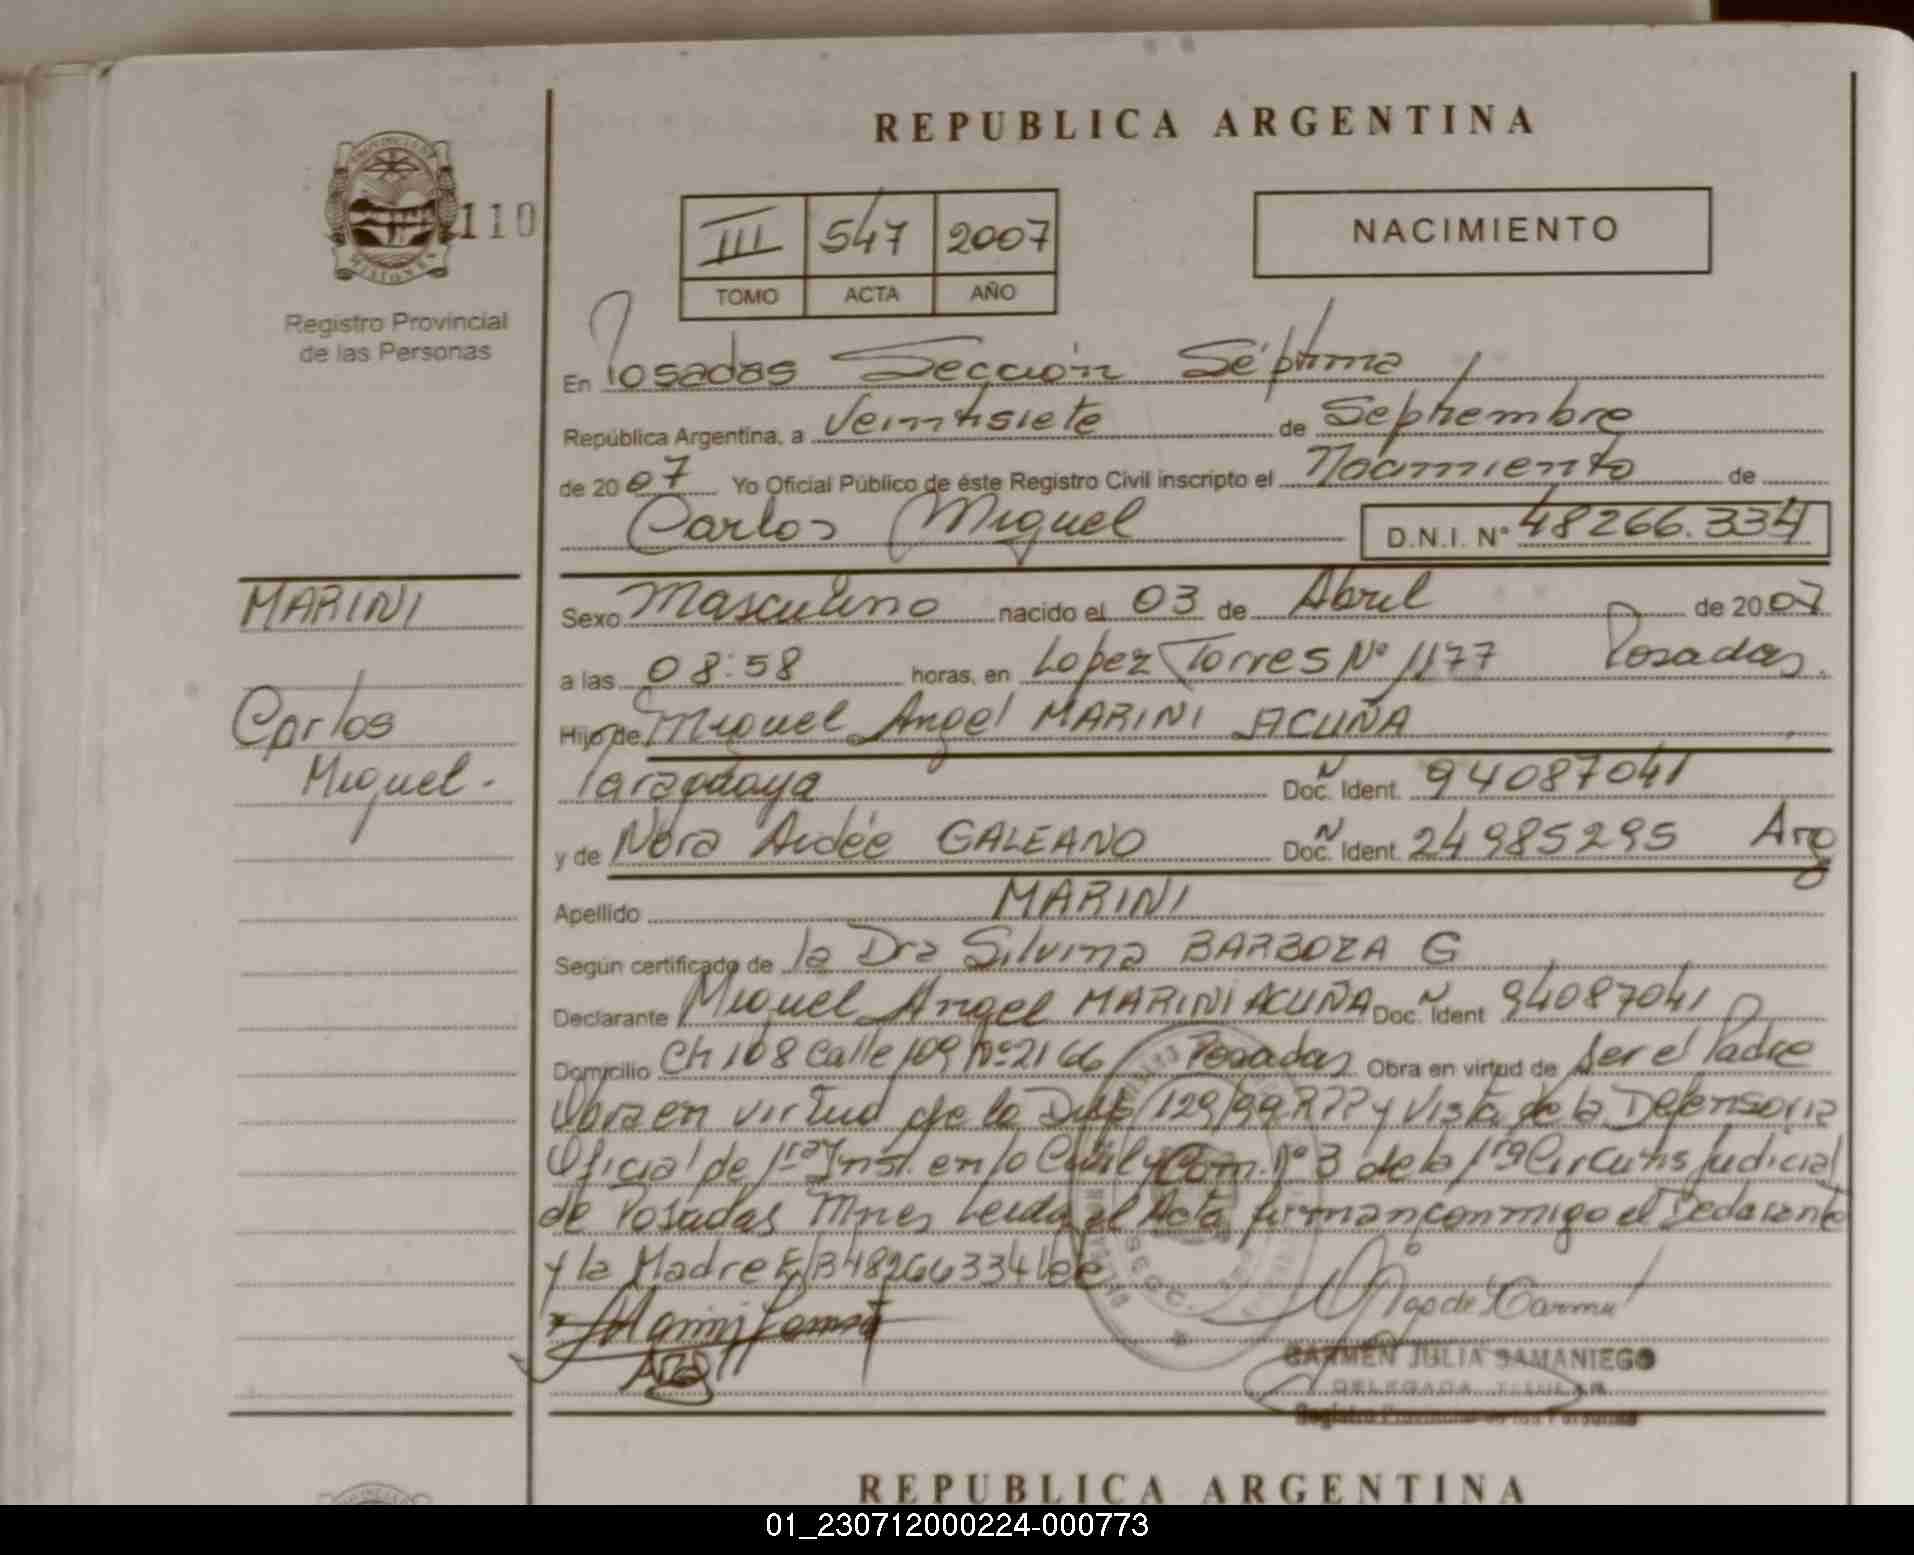 REPUBLICA ARGENTINA
PROVINCIA DE
MISIONES
110
Registro Provincial
de las Personas
III 547 2007
TOMO ACTA AÑO
NACIMIENTO
En Posadas Sección Séptima
República Argentina, a Veintisiete de Septiembre
de 2007 Yo Oficial Público de éste Registro Civil inscripto el Nacimiento de
Carlos Miguel D.N.I. N° 48266.334
MARINI
Carlos
Miguel.-
Sexo Masculino nacido el 03 de Abril de 2007
a las 08:58 horas, en Lopez Torres N° 1177 Posadas.
Hijo de Miguel Angel MARINI ACUÑA
Paraguaya Doc. Ident. 94087041
y de Nora Aidée GALEANO Doc. Ident. 24985295 Arg
Apellido MARINI
Según certificado de la Dra Silvina BARBOZA G
Declarante Miguel Angel MARINI ACUÑA Doc. Ident 94087041
Domicilio Ch 108 Calle 109 N° 2166 Posadas Obra en virtud de ser el Padre
Obra en virtud de la 129/99 y Vista de la Defensoria
Oficial de 1ra Inst. en lo Civil y Com. N° 3 de la 1ra Judicial
de Posadas Mnes Leida el Acta firman conmigo el Declarante
y la Madre 48266334
CARMEN JULIA SAMANIEGO
DELEGADA TITULAR
Registro Provincial de las Personas
REPUBLICA ARGENTINA
01_230712000224-000773